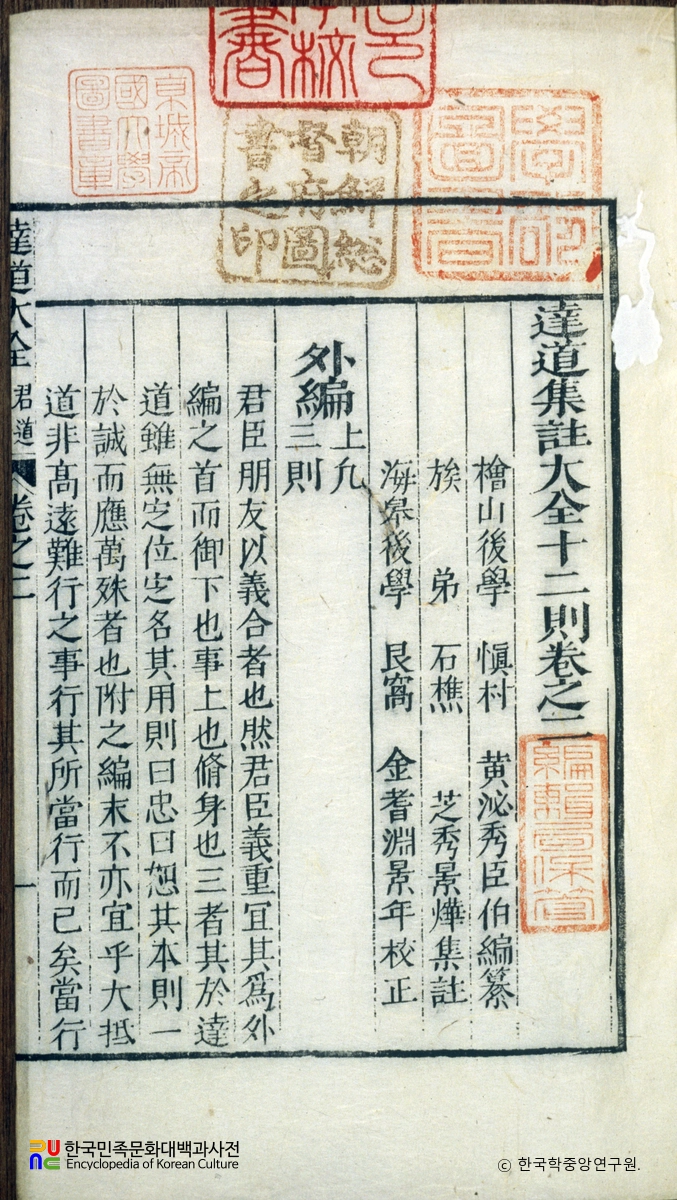 達道集註大全十二則卷之二
檜山後學 愼村 黄泌秀臣伯編纂
族弟 石樵 芝秀景燁集註
海皋後學 艮窩 金耆淵景年校正
外編上凡三則
君臣朋友以義合者也然君臣義重冝其爲外
編之首而御下也事上也脩身也三者其於達
道雖無定位定名其用則曰忠曰恕其本則一
於誠而應萬殊者也附之編末不亦宜乎大抵
道非高遠難行之事行其所當行而已矣當行
達道大全 君道 卷之二 一
朝鮮總督府圖書之印
京城帝國大學圖書章
學部圖書
編輯局保管
한국민족문화대백과사전
Encyclopedia of Korean Culture
© 한국학중앙연구원.